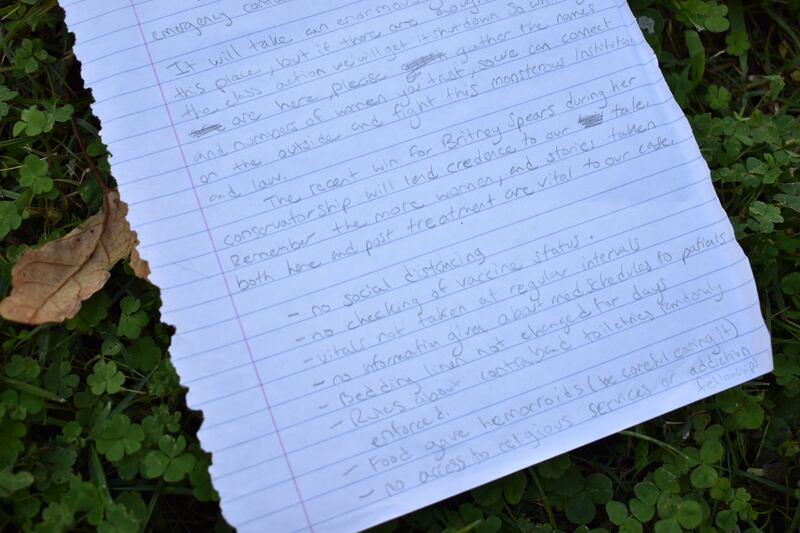 emergency con
It will take an enormous
this place, but if there are enough
the class action we will get it shutdown. So wh
are here, please gather the names
and numbers of women you trust, so we can connect
on the outside and fight this monsterous Institution
and law.
The recent win for Britney Spears during her
conservatorship will lend credence to our tale.
Remember the more women, and stories taken
both here and post treatment are vital to our case.
- no social distancing
- no checking of vaccine status.
- vitals not taken at regular intervals
- no information given about med schedules to patients
- Bedding linen not changed for days
- Rules about contraband toiletries randomly
enforced.
- Food gave hemorroids (be careful eating it)
- no access to religious services or addiction
fellowship!